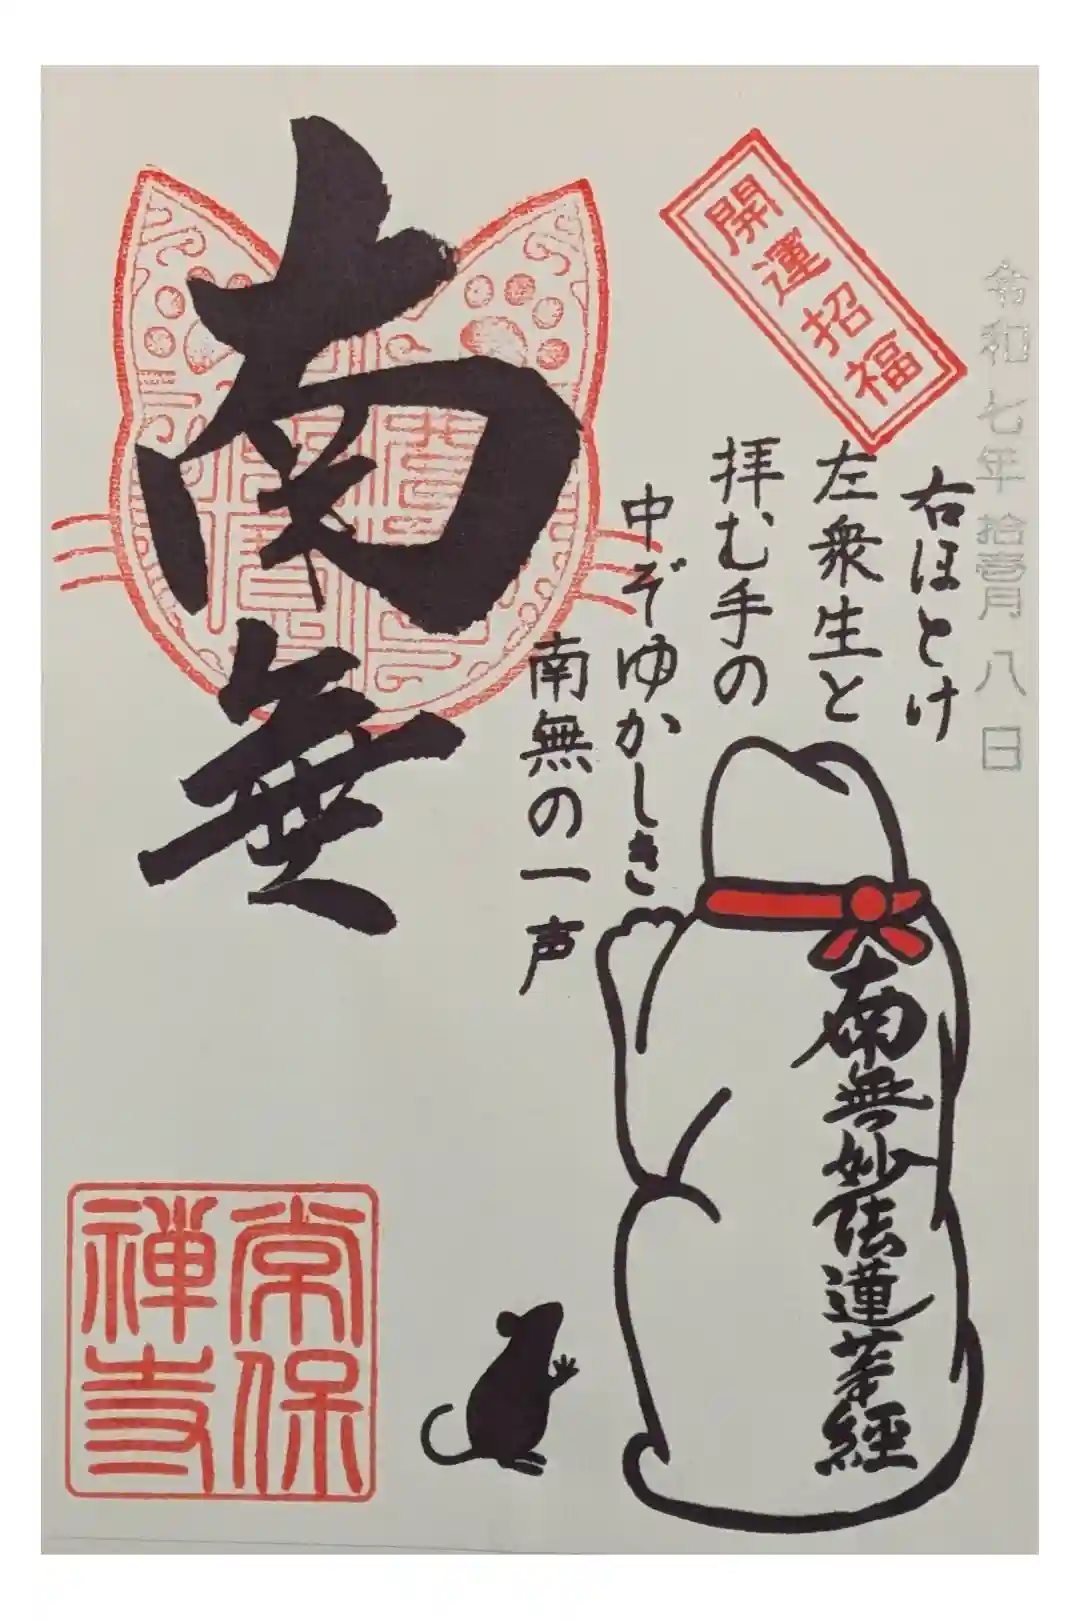 令和七年 拾壹月 八 日
開運招福
右ほとけ
左衆生と
拝む手の
中ぞゆかしき
南無の一声
南無妙法蓮華経
南無
常保
禅寺